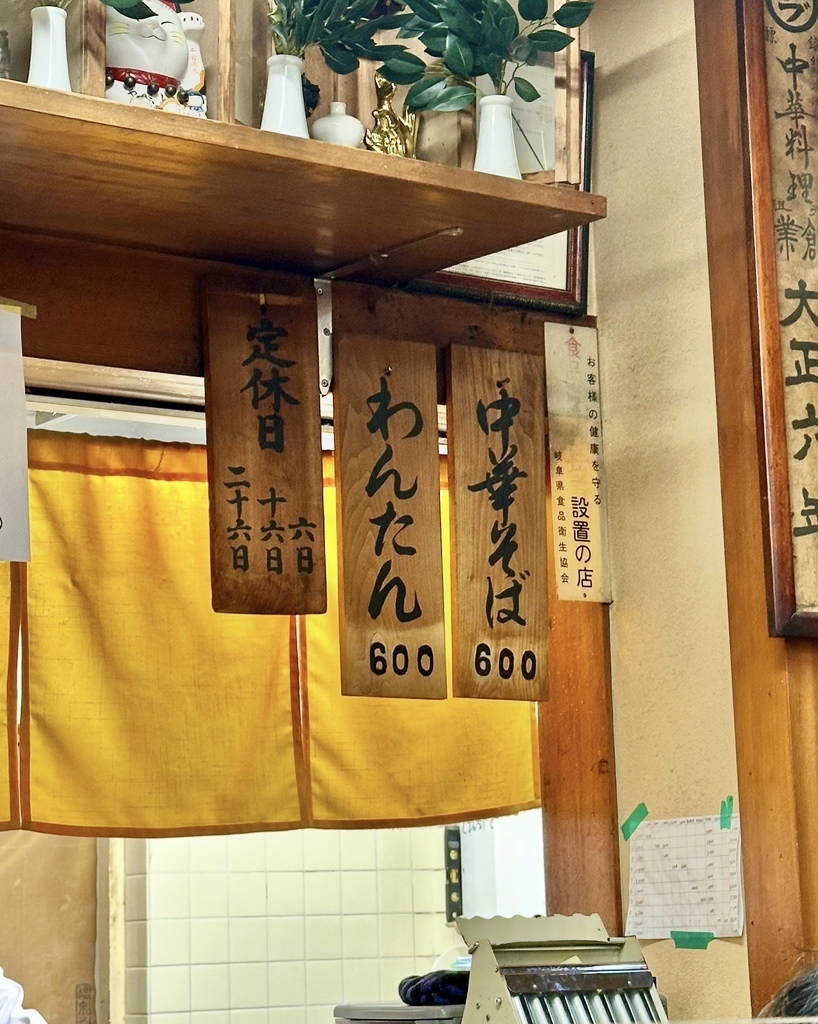 中華料理
創業
大正六年
食
お客様の健康を守る
設置の店
岐阜県食品衛生協会
中華そば
600
わんたん
600
定休日
六日
十六日
二十六日